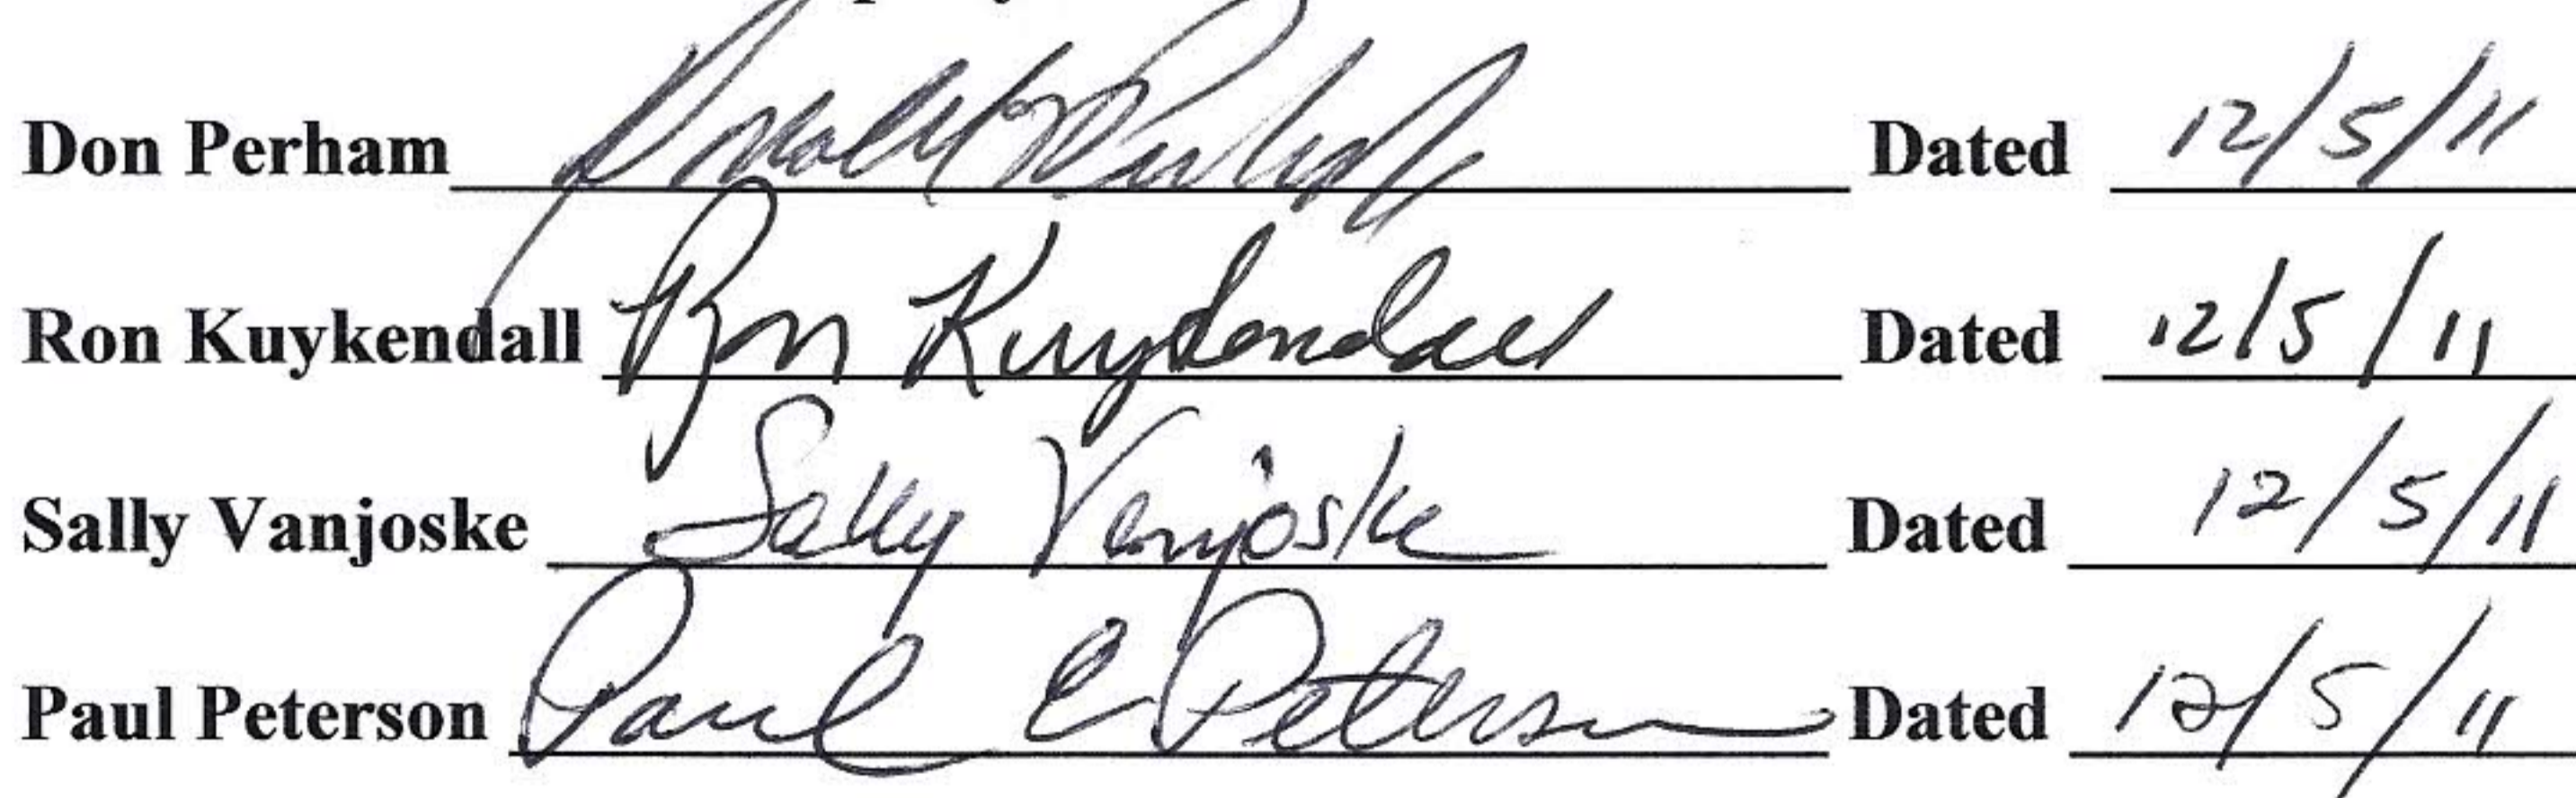 Don Perham Donald Dated 12/5/11
Ron Kuykendall Ron Kuykendall Dated 12/5/11
Sally Vanjoske Sally Vanjoske Dated 12/5/11
Paul Peterson Paul C Peterson Dated 12/5/11